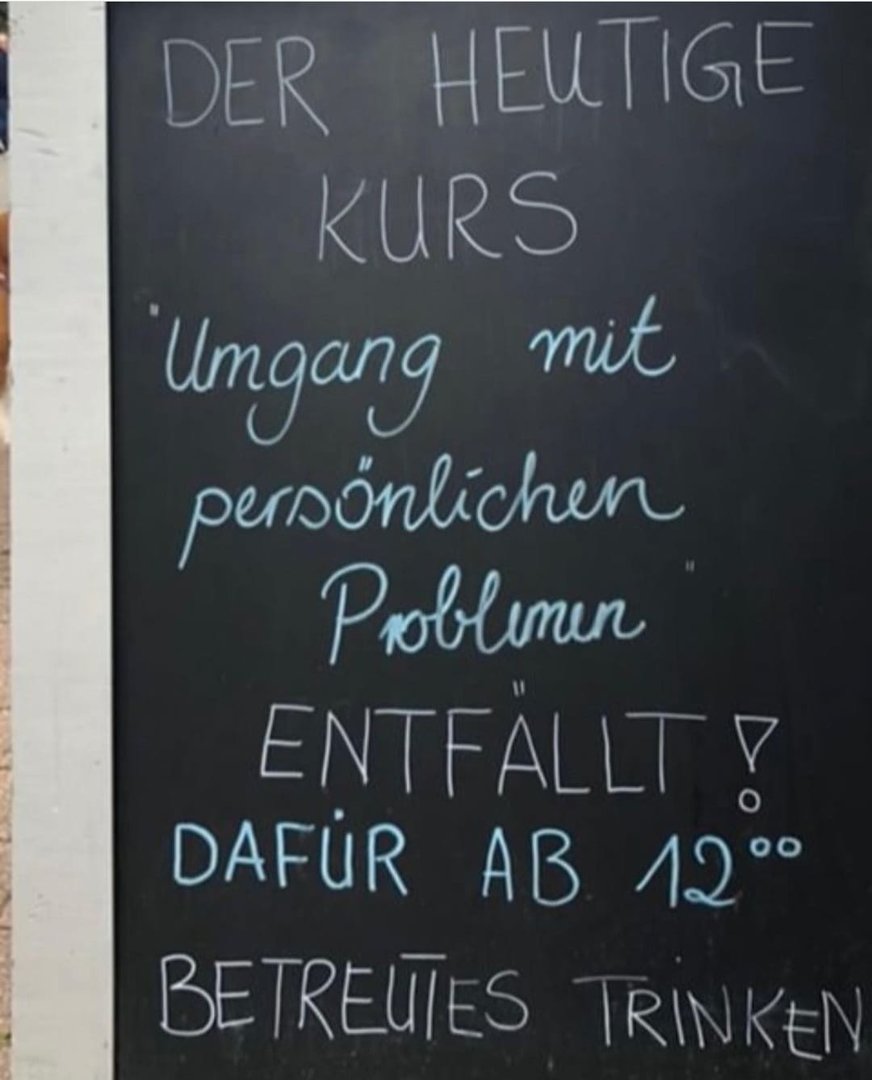 DER HEUTIGE
KURS
"Umgang mit
persönlichen
Problemen"
ENTFÄLLT!
DAFÜR AB 12⁰⁰
BETREUTES TRINKEN